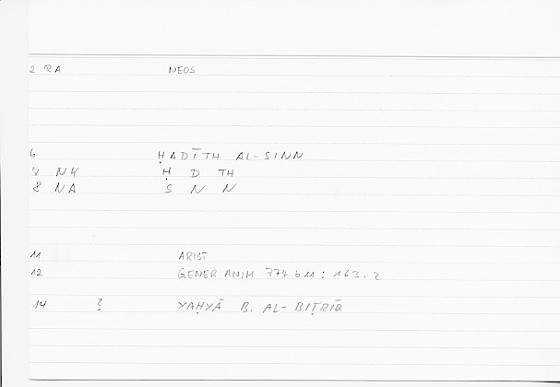 2 RA NEOS
6 ḤADĪTH AL-SINN
7 NY Ḥ D TH
8 NA S N N
11 ARIST
12 GENER ANIM 774 b 11 : 163.2
14 ? YAḤYĀ B. AL-BIṬRĪQ